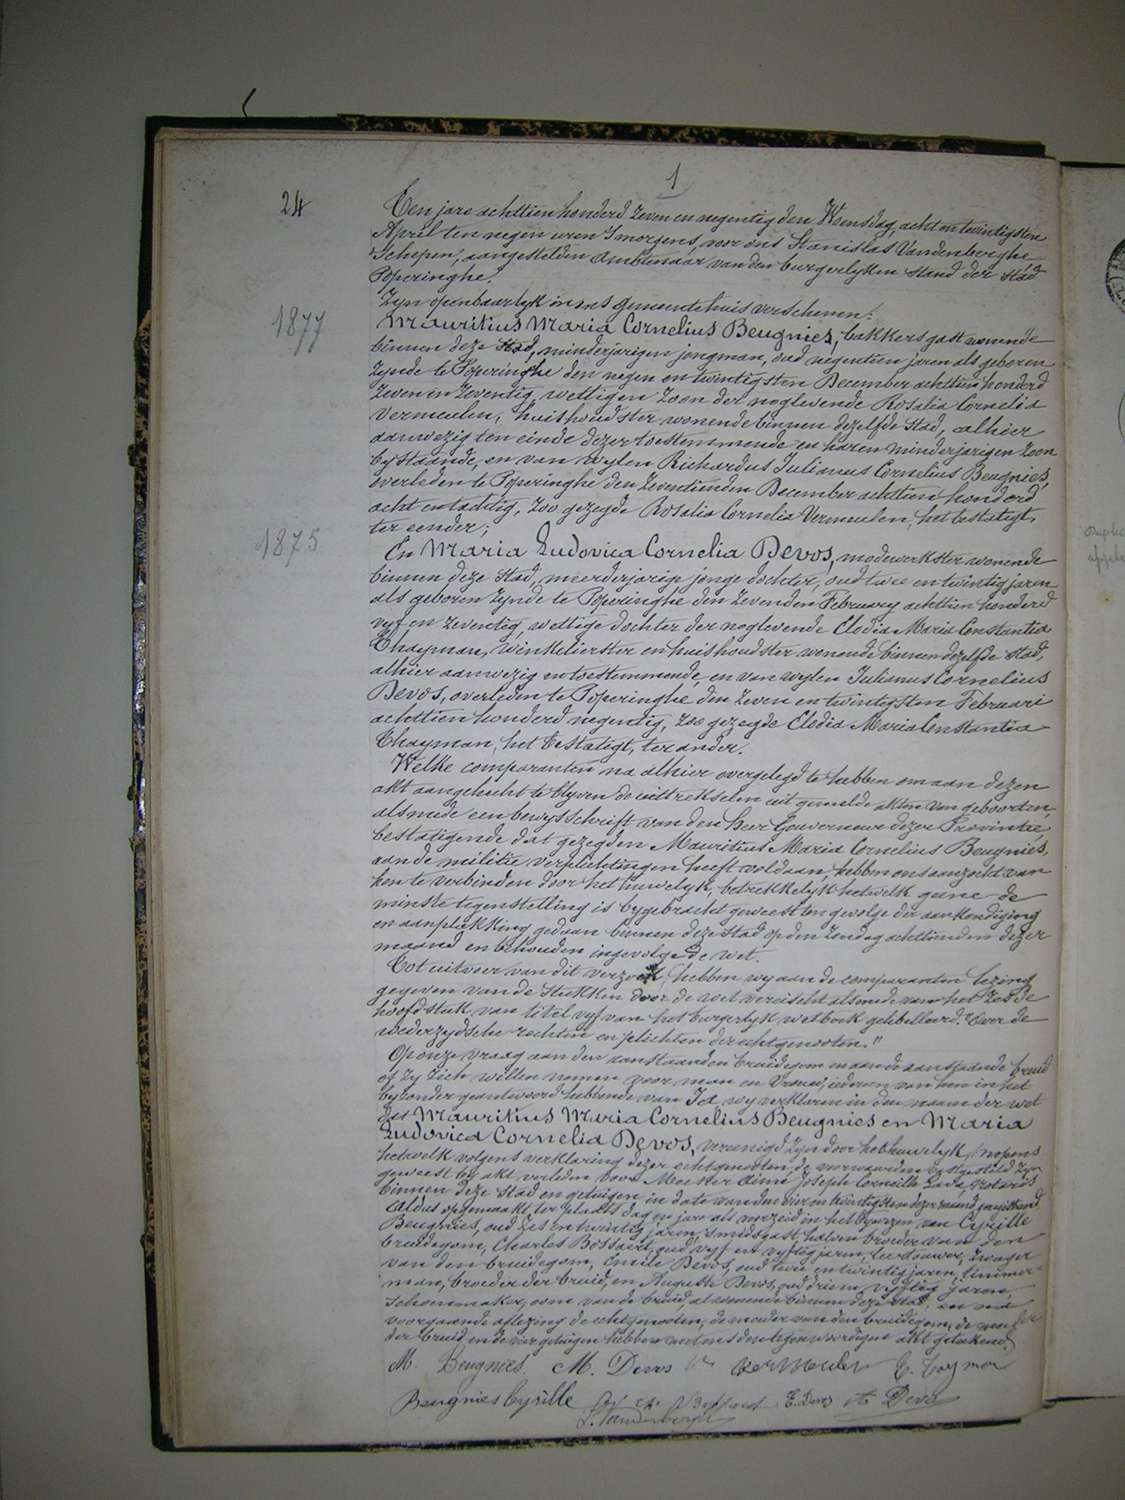 1
24
Ten jare achttien honderd zeven en negentig den Woensdag, acht en twintigsten
April ten negen uren 's morgens, voor ons Stanislas Vandenberghe
Schepen, aangestelden ambtenaar van den burgerlyken stand der stad
Poperinghe.
Zyn openbaarlyk in ons gemeentehuis verschenen:
1877
Mauritius Maria Cornelius Beugnies, bakkersgast wonende
binnen deze stad, minderjarigen jongman, oud negentien jaren als geboren
zynde te Poperinghe den negen en twintigsten December achttien honderd
zeven en zeventig, wettigen zoon der noglevende Rosalia Cornelia
Vermeulen, huishoudster wonende binnen dezelfde stad, alhier
aanwezig ten einde dezer toestemmende en haren minderjarigen zoon
bystaande, en van wylen Richardus Julianus Cornelius Beugnies,
overleden te Poperinghe den zeventienden December achttien honderd
acht en tachtig, zoo gezegde Rosalia Cornelia Vermeulen het bestatigt,
ter eender;
1875
En Maria Ludovica Cornelia Devos, modewerkster wonende
binnen deze stad, meerderjarige jonge dochter, oud twee en twintig jaren
als geboren zynde te Poperinghe den zevenden February achttien honderd
vyf en zeventig, wettige dochter der noglevende Clodia Maria Constantia
Thayman, winkelierster en huishoudster wonende binnen dezelfde stad,
alhier aanwezig en toestemmende, en van wylen Julianus Cornelius
Devos, overleden te Poperinghe den zeven en twintigsten Februari
achttien honderd negentig, zoo gezegde Clodia Maria Constantia
Thayman, het bestatigt, ter ander.
Welke comparanten na alhier overgelegd te hebben om aan dezen
akt aangehecht te blyven de uittrekselen uit gemelde akten van geboorten,
alsmede een bewysschrift van den heer Gouverneur dezer Provintie,
bestatigende dat gezegden Mauritius Maria Cornelius Beugnies,
aan de militie verplichtingen heeft voldaan, hebben ons aanzocht van
hen te verbinden door het huwelyk, betrekkelyk hetwelk geene de
minste tegenstelling is bygebracht geweest ten gevolge der aankondiging
en aanplakking gedaan binnen deze stad op den zondag achttienden dezer
maand en behouden ingevolge de wet.
Tot uitvoer van dit verzoek, hebben wy aan de comparanten lezing
gegeven van de stukken door de wet vereischt alsmede van het zesde
hoofdstuk van titel vyf van het burgerlyk wetboek gelibelleerd: "Over de
wederzydsche rechten en plichten der echtgenooten."
Op onze vraag aan den aanstaanden bruidegom en aan de aanstaande bruid
of zy zich willen nemen voor man en vrouw, iederen van hen in het
byzonder geantwoord hebbende van Ja, wy verklaren in den naam der wet
dat Mauritius Maria Cornelius Beugnies en Maria
Ludovica Cornelia Devos, vereenigd zyn door het huwelyk, nopens
hetwelk volgens verklaring dezer echtgenooten, de voorwaarden vastgesteld zyn
geweest by akt verleden voor Meester Aimé Joseph Corneille Lava, notaris
binnen deze stad en getuigen in date van den vier en twintigsten dezer maand,
Aldus opgemaakt ter plaats dag en jare als voorzeid in het bywezen van Cyrille
Beugnies, oud zes en twintig jaren, smidsgast, halven broeder van den
bruidegom, Charles Bossaert, oud vyf en vyftig jaren, leertouwer, zwager
van den bruidegom, Emile Devos, oud twee en twintig jaren, timmer-
man, broeder der bruid, en Auguste Devos, oud drie en vyftig jaren,
schoenmaker, oom van de bruid, al wonende binnen deze stad, en na
voorgaande aflezing de echtgenooten, de moeder van den bruidegom, de moeder
der bruid en de vier getuigen hebben met ons den tegenwoordigen akt geteekend.
M. Beugnies. M. Devos Vermeulen C. Tayman
Beugnies Cyrille Ch Bossaert E. Devos A Devos
S. Vandenberghe